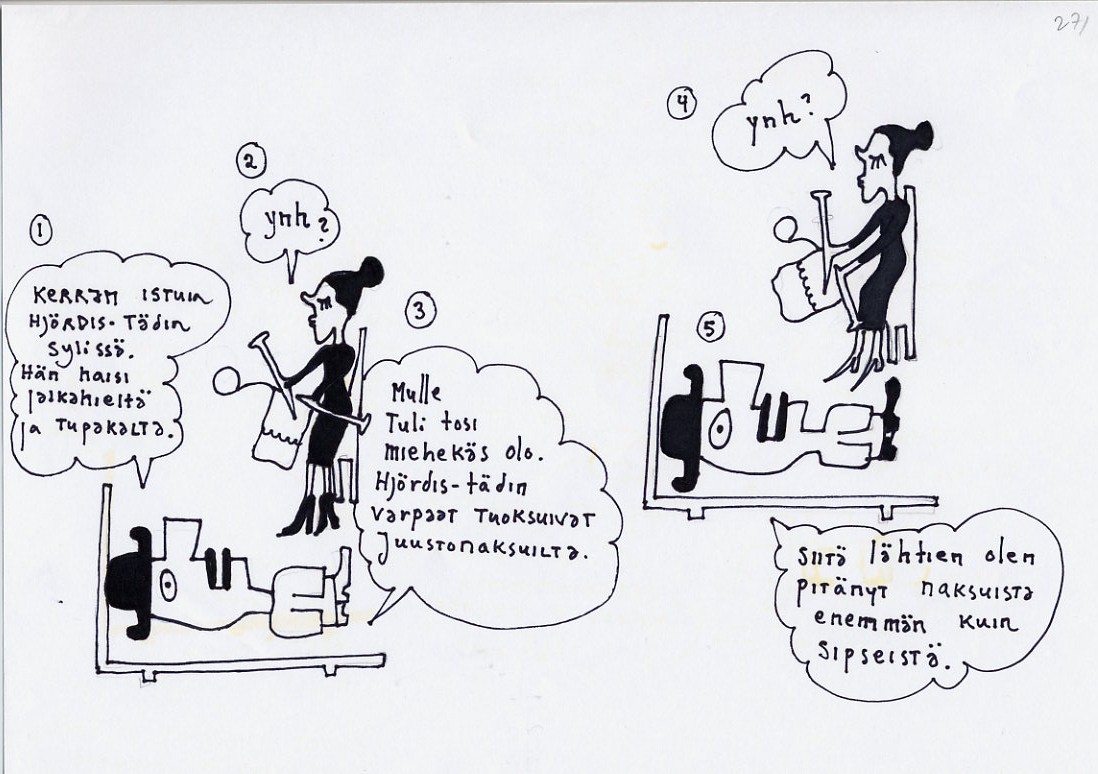 271
1
Kerran istuin
Hjördis-tädin
sylissä.
Hän haisi
jalkahieltä
ja tupakalta.
2
ynh?
3
Mulle
Tuli tosi
miehekäs olo.
Hjördis-tädin
varpaat tuoksuivat
juustonaksuilta.
4
ynh?
5
Siitä lähtien olen
pitänyt naksuista
enemmän kuin
Sipseistä.